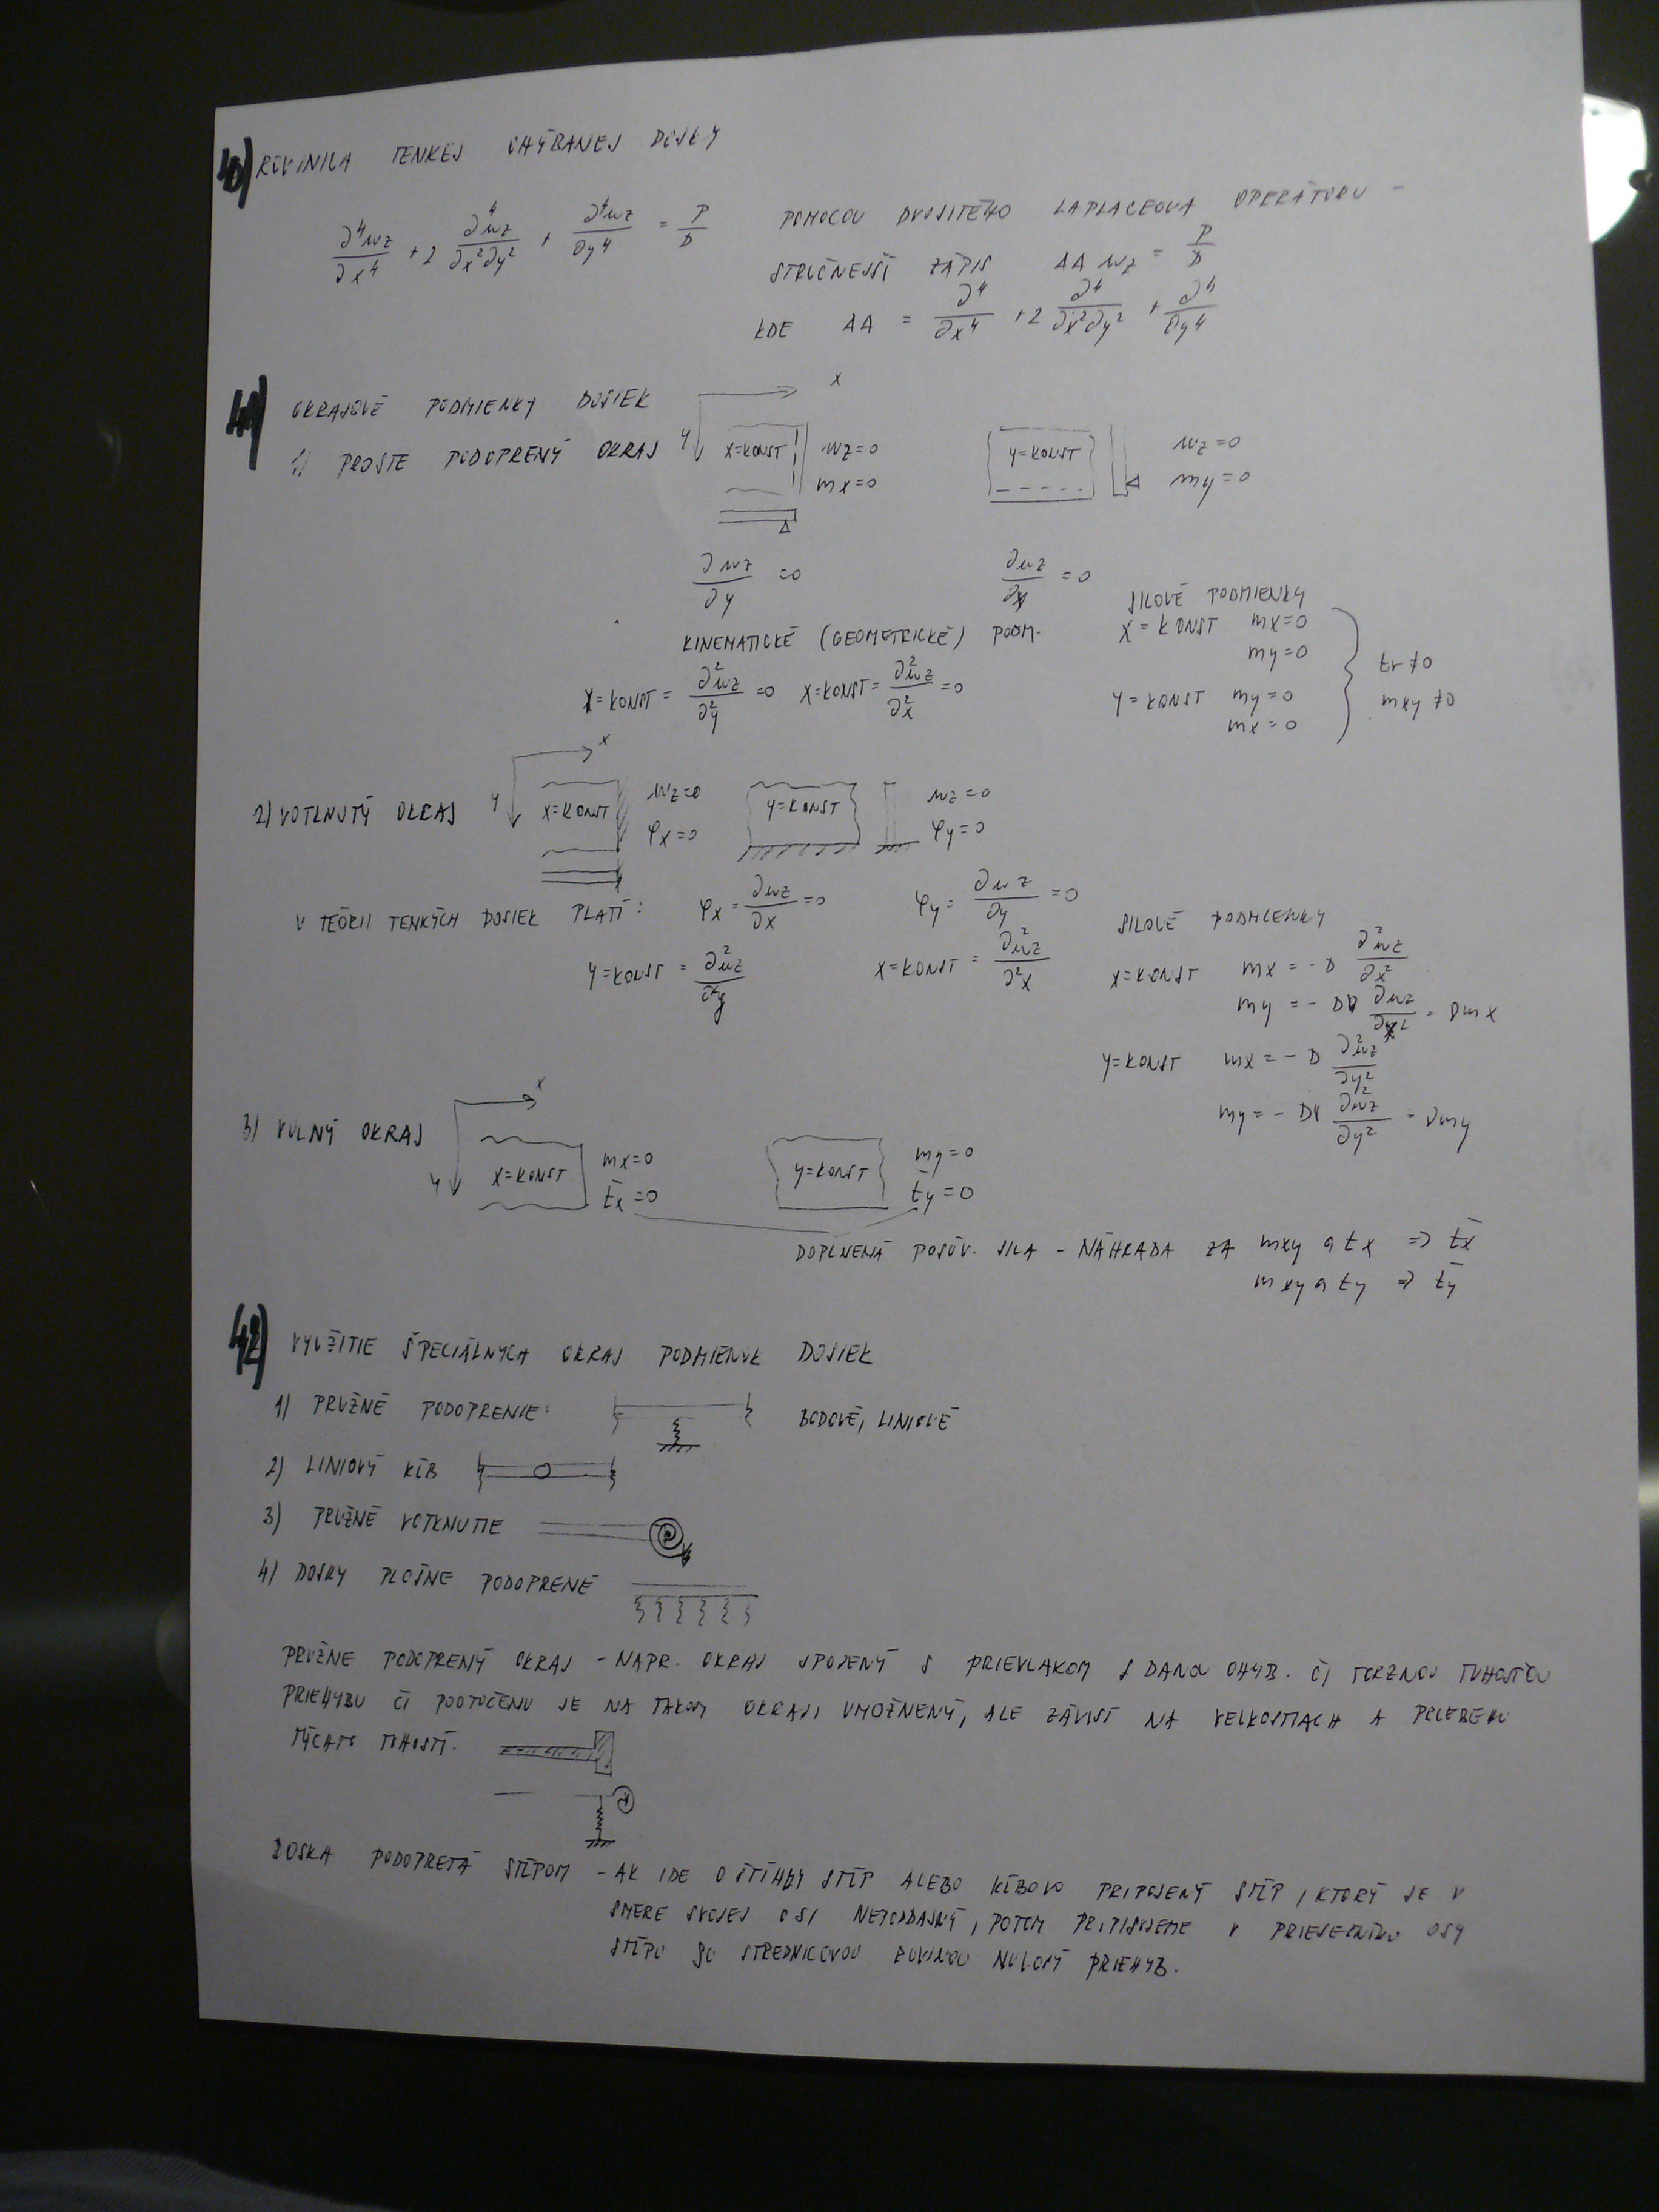 40) ROVNICA TENKEJ OHÝBANEJ DOSKY
∂⁴wz/∂x⁴ + 2 ∂⁴wz/∂x²∂y² + ∂⁴wz/∂y⁴ = P/D
POMOCOU DVOJITÉHO LAPLACEOVA OPERÁTORU -
STRUČNEJŠÍ ZÁPIS ΔΔ wz = P/D
KDE ΔΔ = ∂⁴/∂x⁴ + 2 ∂⁴/∂x²∂y² + ∂⁴/∂y⁴
41) OKRAJOVÉ PODMIENKY DOSIEK
1) PROSTE PODOPRENÝ OKRAJ
x
y
X=KONST wz=0
mx=0
y=KONST wz=0
my=0
∂wz/∂y =0 ∂wz/∂x =0
KINEMATICKÉ (GEOMETRICKÉ) PODM.
X=KONST = ∂²wz/∂²y =0 X=KONST = ∂²wz/∂²x =0
SILOVÉ PODMIENKY
X=KONST mx=0
my=0
Y=KONST my=0
mx=0
≠0
mxy ≠0
2) VOTKNUTÝ OKRAJ
x
y
X=KONST wz=0
φx=0
y=KONST wz=0
φy=0
V TEÓRII TENKÝCH DOSIEK PLATÍ: φx = ∂wz/∂x =0 φy = ∂wz/∂y =0
Y=KONST = ∂²wz/∂²y X=KONST = ∂²wz/∂²x
SILOVÉ PODMIENKY
X=KONST mx = -D ∂²wz/∂x²
my = - Dν ∂²wz/∂x² = νmx
Y=KONST mx = -D ∂²wz/∂y²
my = - Dν ∂²wz/∂y² = νmy
3) VOLNÝ OKRAJ
x
y
X=KONST mx=0
t̄x=0
y=KONST my=0
t̄y=0
DOPLNENÁ POSÚV. SILA - NÁHRADA ZA mxy a tx => t̄x
mxy a ty => t̄y
42) VYUŽITIE ŠPECIÁLNYCH OKRAJ PODMIENOK DOSIEK
1) PRUŽNÉ PODOPRENIE: BODOVÉ, LINIOVÉ
2) LINIOVÝ KĹB
3) PRUŽNÉ VOTKNUTIE
4) DOSKY PLOŠNE PODOPRENÉ
PRUŽNE PODOPRENÝ OKRAJ - NAPR. OKRAJ SPOJENÝ S PRIEVLAKOM S DANOU OHYB. ČI TORZNOU TUHOSŤOU
PRIEHYBU ČI POOTOČENU JE NA TAKOM OKRAJI UMOŽNENÝ, ALE ZÁVISÍ NA VELKOSTIACH A PRIEBEHU
TÝCHTO TUHOSTÍ.
DOSKA PODOPRETÁ STĹPOM - AK IDE O ŠTÍHLY STĹP ALEBO KĹBOVO PRIPOJENÝ STĹP, KTORÝ JE V
SMERE SVOJEJ OSI NEPODDAJNÝ, POTOM PRIPISUJEME V PRIESEČNÍKU OSY
STĹPU SO STREDNICOVOU ROVINOU NULOVÝ PRIEHYB.